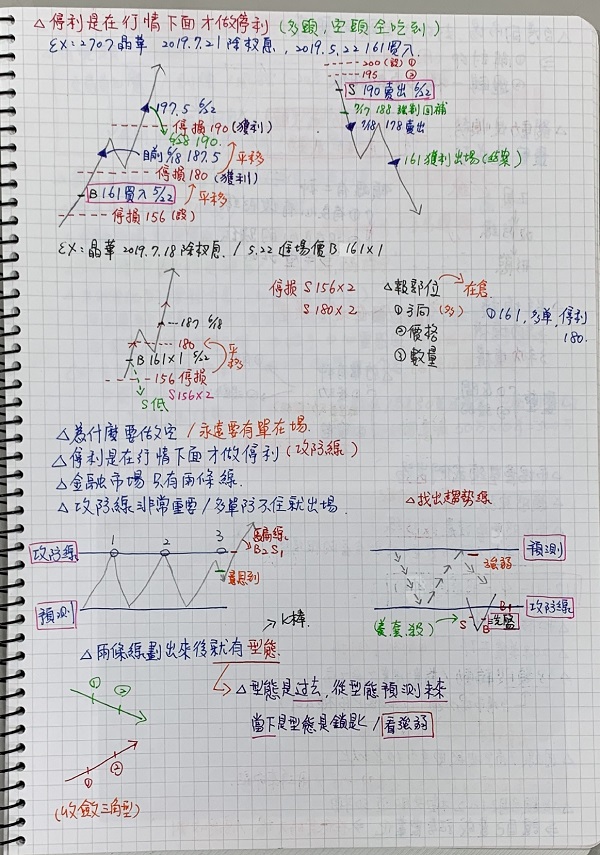 △停利是在行情下面才做停利(多頭,空頭全吃到)
EX:2707晶華 2019.7.21除权息,2019.5.22 161買入.
197.5 6/22
6/28 190.
停損190(獲利)
目前6/18 187.5
平移
停損180(獲利)
B 161買入 5/22
平移
停損156(設)
200(設)①
195 ②
S 190賣出 6/22
7/17 188 強制回補
7/18 178賣出
161獲利出場(結案)
EX:晶華2019.7.18除权息. / 5.22進場價B 161×1
187 6/18
180
B 161×1 5/22
平移
156停損
S156×2
S低
停損 S156×2
S180×2
△報部位
在倉
①方向(多)
②價格
③數量
①161,多單,停利180.
△為什麼要做空/永遠要有單在場.
△停利是在行情下面才做停利(攻防線)
△金融市場只有兩條線.
△攻防線非常重要/多單防不住就出場.
攻防線
1 2 3
B2S1
預測
△找出趨勢線
預測
強弱
攻防線
S
B1
B
洗盤
K棒
△兩條線劃出來後就有型態.
△型態是過去,從型態預測未來
當下是型態是鎖是K/看強弱
① ②
① ②
(收斂三角型)